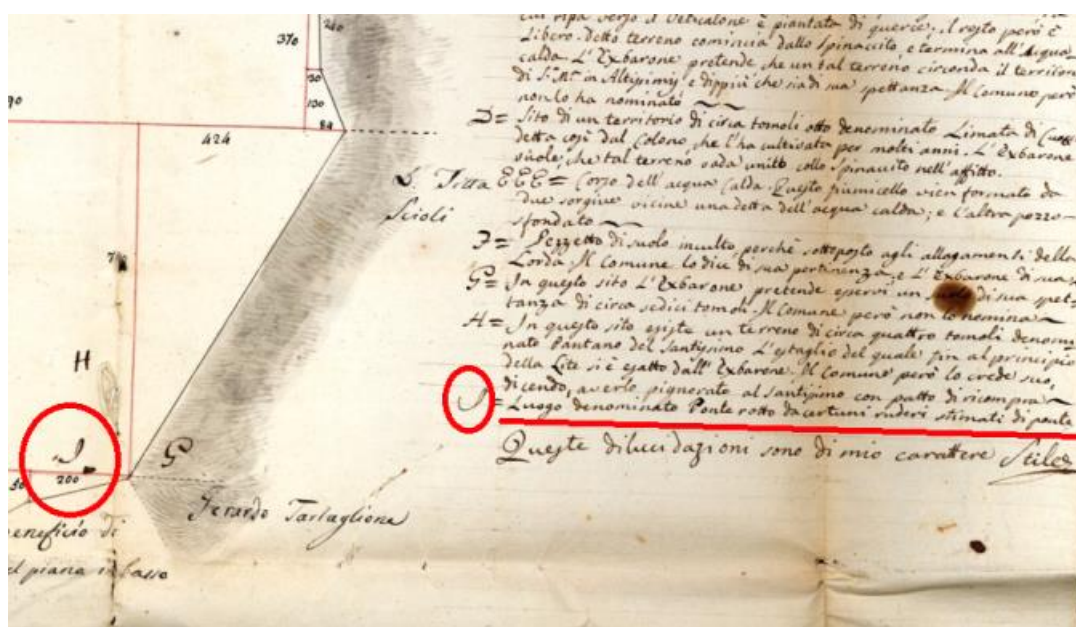 cui ripa verso il Veticalone è piantata di querce; il resto però è
libero. Detto terreno comincia dallo Spinaccito, e termina all'Acqua
calda. L'Exbarone pretende che un tal terreno circonda il territorio
di S. M. in Altissimis, e dippiù che sia di sua spettanza. Il Comune però
non lo ha nominato
D = Sito di un territorio di circa tomoli otto denominato Limata di
detta così dal Colono, che l'ha cultivata per molti anni. L'Exbarone
vuole, che tal terreno vada unito collo Spinaccito nell'affitto.
EEE = Corso dell'acqua Calda. Questo fiumicello vien formato da
due sorgive vicine una detta dell'acqua calda; e l'altra pozzo
sfondato
F = Pezzetto di suolo inculto, perchè sottoposto agli allagamenti della
Lorda. Il Comune lo dice di sua pertinenza, e L'Exbarone di sua
G = In questo sito L'Exbarone pretende esservi un suolo di sua spet-
tanza di circa sedici tomoli. Il Comune però non lo nomina
H = In questo sito esiste un terreno di circa quattro tomoli denomi-
nato Pantano del Santissimo L'estaglio del quale fin al principio
della Lite si è esatto dall'Exbarone. Il Comune però lo crede suo,
dicendo, averlo pignorato al Santissimo con patto di ricompra
I = Luogo denominato Ponte rotto da certuni ruderi stimati di ponte
Queste dilucidazioni sono di mio carattere Stile
240
370
30
130
84
90
424
D. Titta
Scioli
H
I
G
200
50
Gerardo Tartaglione
eneficio di
el piana in basso